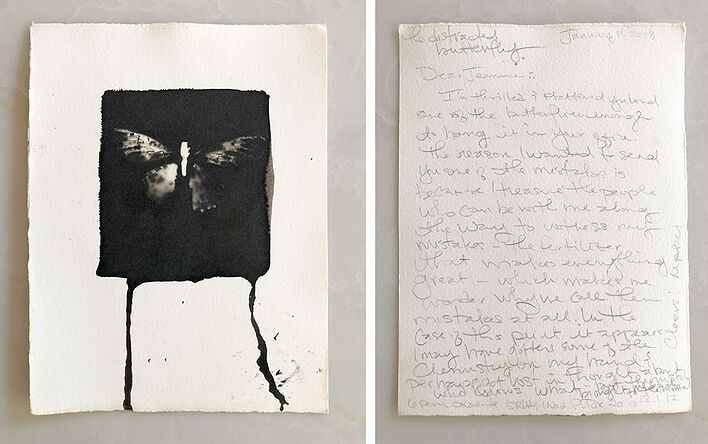 the distracted January 2018
butterfly.
Dear Jeannie:
I'm thrilled & flattered you loved
one of the butterflies enough
to hang it in your
The reason I wanted to send
you one of the mistakes is
because I treasure the people
who can be with me along
the way to witness my
mistakes - the fertilizer
that makes everything
great - which makes me
wonder why we call them
mistakes at all. In the
case of this print, it appears
I may have gotten some of the
chemistry on my hands &
perhaps got lost in thought about
who knows what
Cheers!